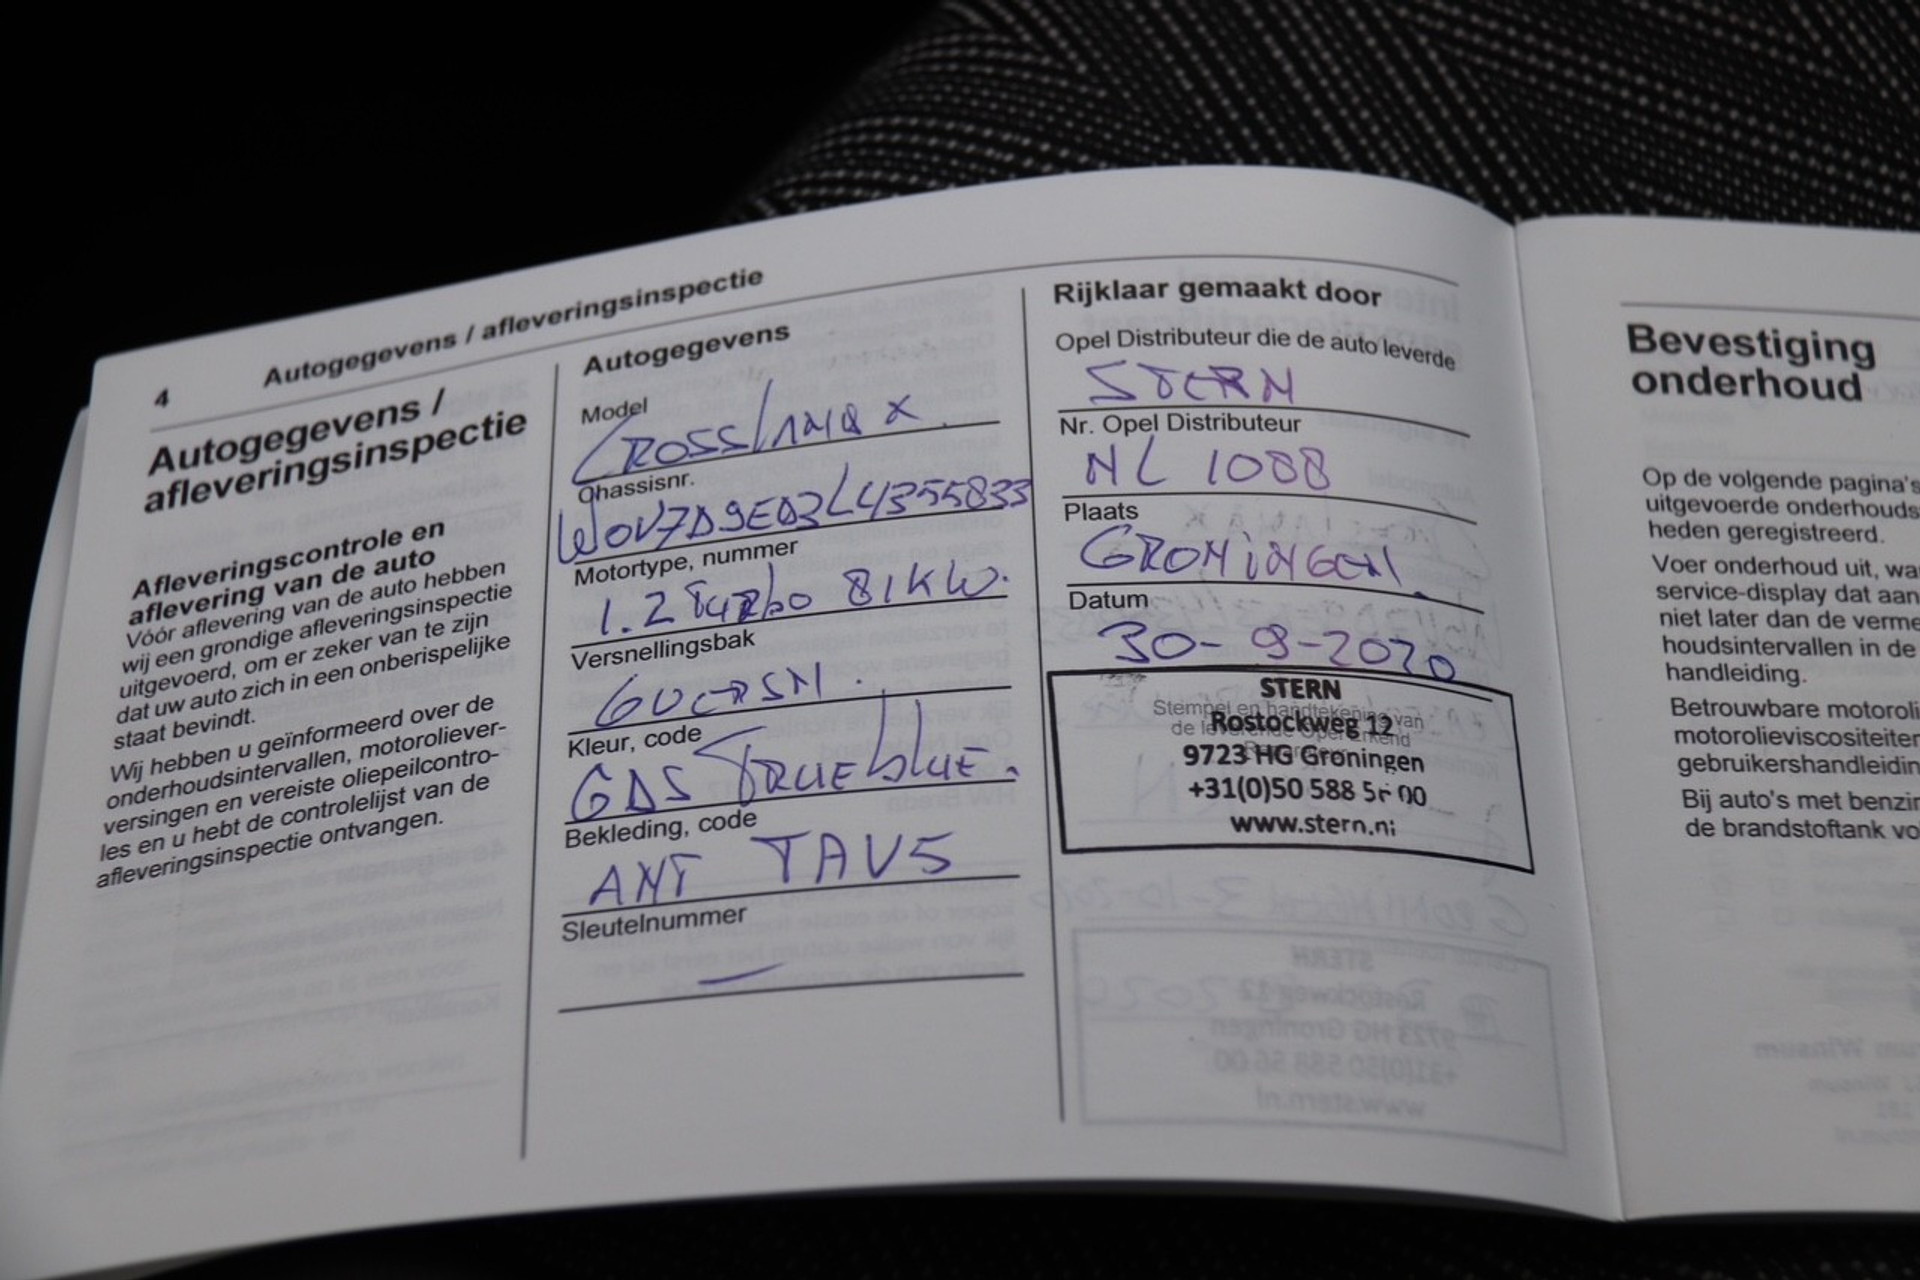 4
Autogegevens / afleveringsinspectie
Autogegevens /
afleveringsinspectie
Afleveringscontrole en
aflevering van de auto
Vóór aflevering van de auto hebben
wij een grondige afleveringsinspectie
uitgevoerd, om er zeker van te zijn
dat uw auto zich in een onberispelijke
staat bevindt.
Wij hebben u geïnformeerd over de
onderhoudsintervallen, motoroliever-
versingen en vereiste oliepeilcontro-
les en u hebt de controlelijst van de
afleveringsinspectie ontvangen.
Autogegevens
Model
CROSSlAND X.
Chassisnr.
WOV7D9ED3L4355833
Motortype, nummer
1.2 TURbo 81KW.
Versnellingsbak
6VERSN.
Kleur, code
GDS TRUEblUE.
Bekleding, code
ANT TAV5
Sleutelnummer
—
Rijklaar gemaakt door
Opel Distributeur die de auto leverde
STERN
Nr. Opel Distributeur
NL 1088
Plaats
GRONiNGEN.
Datum
30-9-2020
STERN
Stempel en handtekening van
Rostockweg 12
de leverende Opel Erkend
9723 HG Groningen
+31(0)50 588 56 00
www.stern.nl
Bevestiging
onderhoud
Op de volgende pagina's
uitgevoerde onderhouds
heden geregistreerd.
Voer onderhoud uit, wa
service-display dat aan
niet later dan de verme
houdsintervallen in de
handleiding.
Betrouwbare motoroli
motorolieviscositeiten
gebruikershandleidin
Bij auto's met benzin
de brandstoftank vo